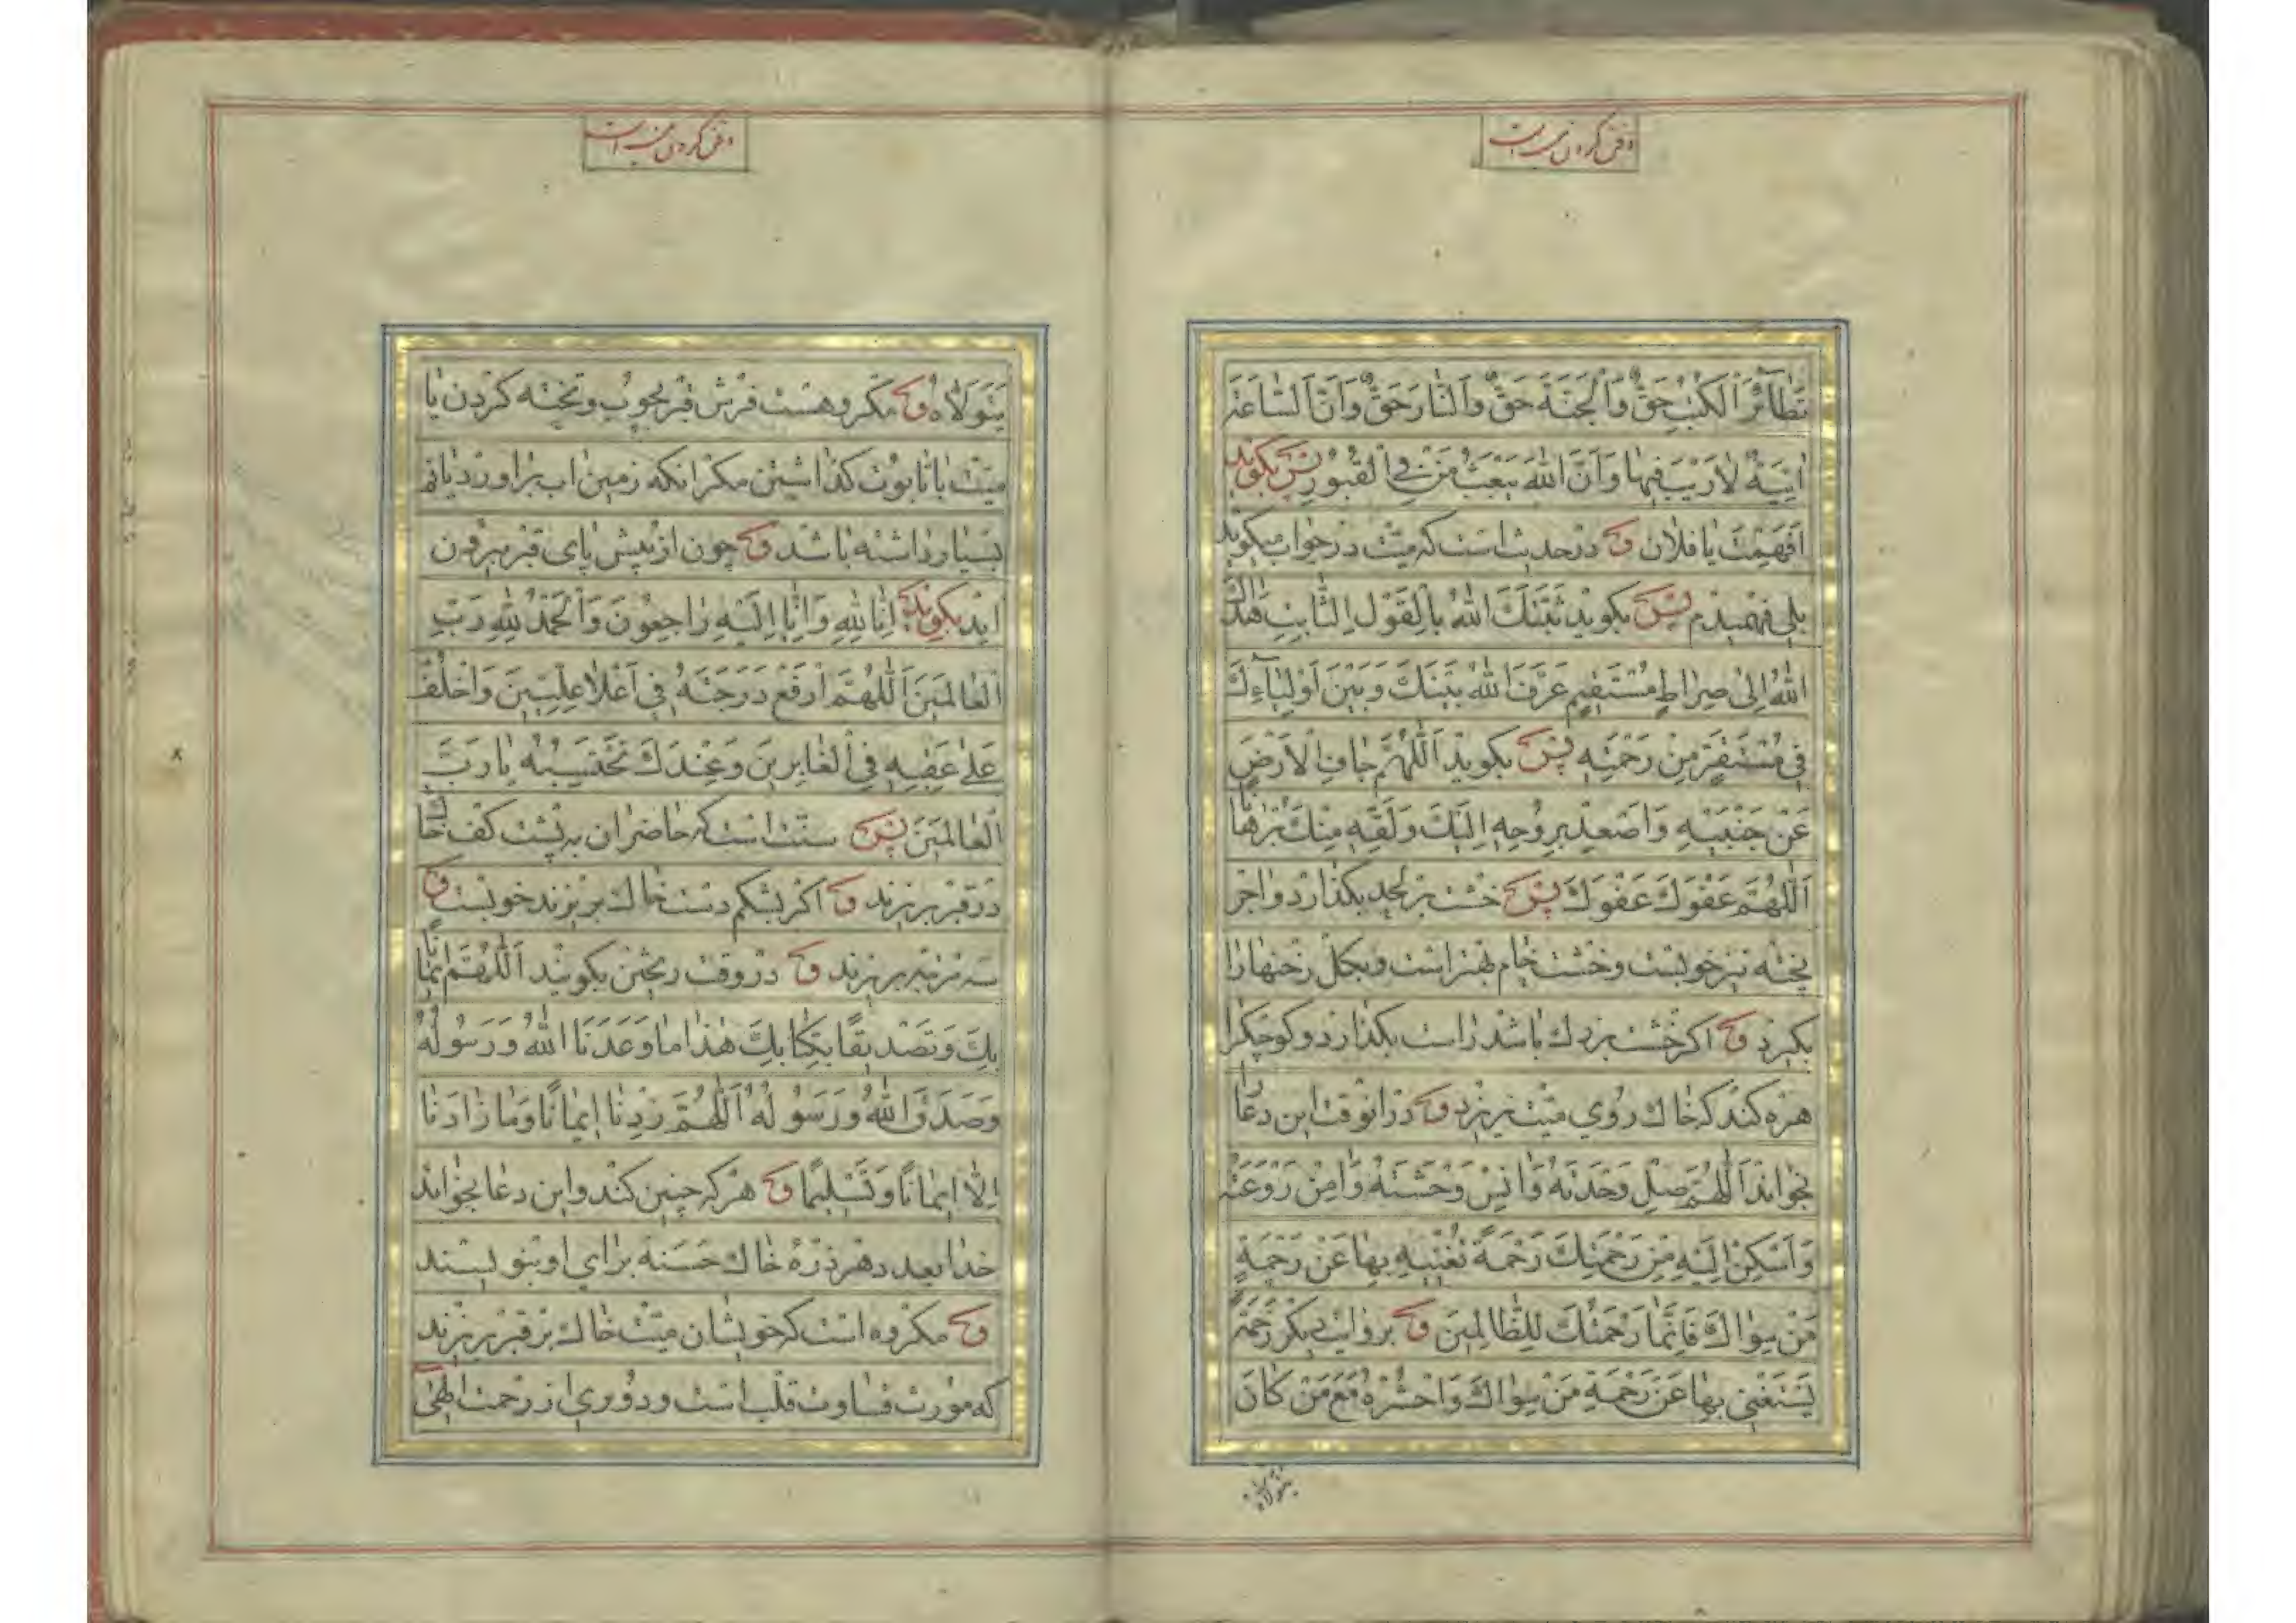 دفن کردن میت
تَطٰآئُرَ الْکُتُبِ حَقٌّ وَاَلْجَنَّةَ حَقٌّ وَاَلنّٰارَ حَقٌّ وَاَنَّ اَلسّٰاعَةَ
اٰتِیَةٌ لاٰرَیْبَ فیهٰا وَاَنَّ اللّٰهَ یَبْعَثُ مَنْ فِی الْقُبُورِ پس بکوید
اَفَهِمْتَ یٰا فلاٰن و در حدیث است که میّت در جواب میکوید
بلی فهمیدم پس بکوید ثَبَّتَكَ اللّٰهُ بِالْقَوْلِ الثّٰابِتِ هَدٰاكَ
اللّٰهُ اِلیٰ صِرٰاطٍ مُسْتَقیمٍ عَرَّفَ اللّٰهُ بَیْنَكَ وَبَیْنَ اَوْلِیٰآءِكَ
فی مُسْتَقَرٍّ مِنْ رَحْمَتِهِ پس بکوید اَللّٰهُمَّ جٰافِ الْاَرْضَ
عَنْ جَنْبَیْهِ وَاَصْعِدْ بِرُوحِهِ اِلَیْكَ وَلَقِّهِ مِنْكَ بُرْهٰانًا
اَللّٰهُمَّ عَفْوَكَ عَفْوَكَ پس خشت بر لحد بکذارد و اجر
پخته نیز خوبست و خشت خام بهتر است و بکل رخنهٰا را
بکیرد و اکر خشت بزرك باشد راست بکذارد و کوچکرا
هرزه کند که خٰاك روی میّت نریزد و در انوقت این دعا
بخواند اَللّٰهُمَّ صِلْ وَحْدَتَهُ وَاٰنِسْ وَحْشَتَهُ وَاٰمِنْ رَوْعَتَهُ
وَاَسْکِنْ اِلَیْهِ مِنْ رَحْمَتِكَ رَحْمَةً تُغْنیهِ بِهٰا عَنْ رَحْمَةِ
مَنْ سِوٰاكَ فَاِنَّمٰا رَحْمَتُكَ لِلظّٰالِمینَ و بروایت دیکر رَحْمَةً
یَسْتَغْنی بِهٰا عَنْ رَحْمَةِ مَنْ سِوٰاكَ وَاحْشُرْهُ مَعَ مَنْ کٰانَ
یتولاه
دفن کردن میت
یَتَوَلاّٰهُ و مکروهست فرش قبر بچوب و تخته کردن یٰا
میّت باتابوت کذاشتن مکر انکه زمین اب براورد یا نم
بسیار داشته باشد و چون از پیش پای قبر بیرون
اید بکوید اِنّٰا لِلّٰهِ وَاِنّٰا اِلَیْهِ رٰاجِعُونَ وَالْحَمْدُ لِلّٰهِ رَبِّ
الْعٰالَمینَ اَللّٰهُمَّ ارْفَعْ دَرَجَتَهُ فی اَعْلاٰ عِلِّیّینَ وَاخْلُفْ
عَلیٰ عَقِبِهِ فِی الْغٰابِرینَ وَعِنْدَكَ نَحْتَسِبُهُ یٰا رَبَّ
الْعٰالَمینَ پس سنّت است که حاضران به پشت کف خٰاك
در قبر بریزند و اکر بشکم دست خٰاك بریزند خوبست و
سه مرتبه بریزند و در وقت ریختن بکویند اَللّٰهُمَّ ایمٰانًا
بِكَ وَتَصْدیقًا بِکِتٰابِكَ هٰذٰا مٰا وَعَدَنَا اللّٰهُ وَرَسُولُهُ
وَصَدَقَ اللّٰهُ وَرَسُولُهُ اَللّٰهُمَّ زِدْنٰا ایمٰانًا وَمٰا زٰادَنٰا
اِلاّٰ ایمٰانًا وَتَسْلیمًا و هر که چنین کند و این دعا بخواند
خدا بعدد هر ذرّهٔ خٰاك حَسَنه برای او بنویسند
و مکروه است که خویشان میّت خاك بر قبر بریزند
که مورث قساوت قلب است و دوری از رحمت الهی